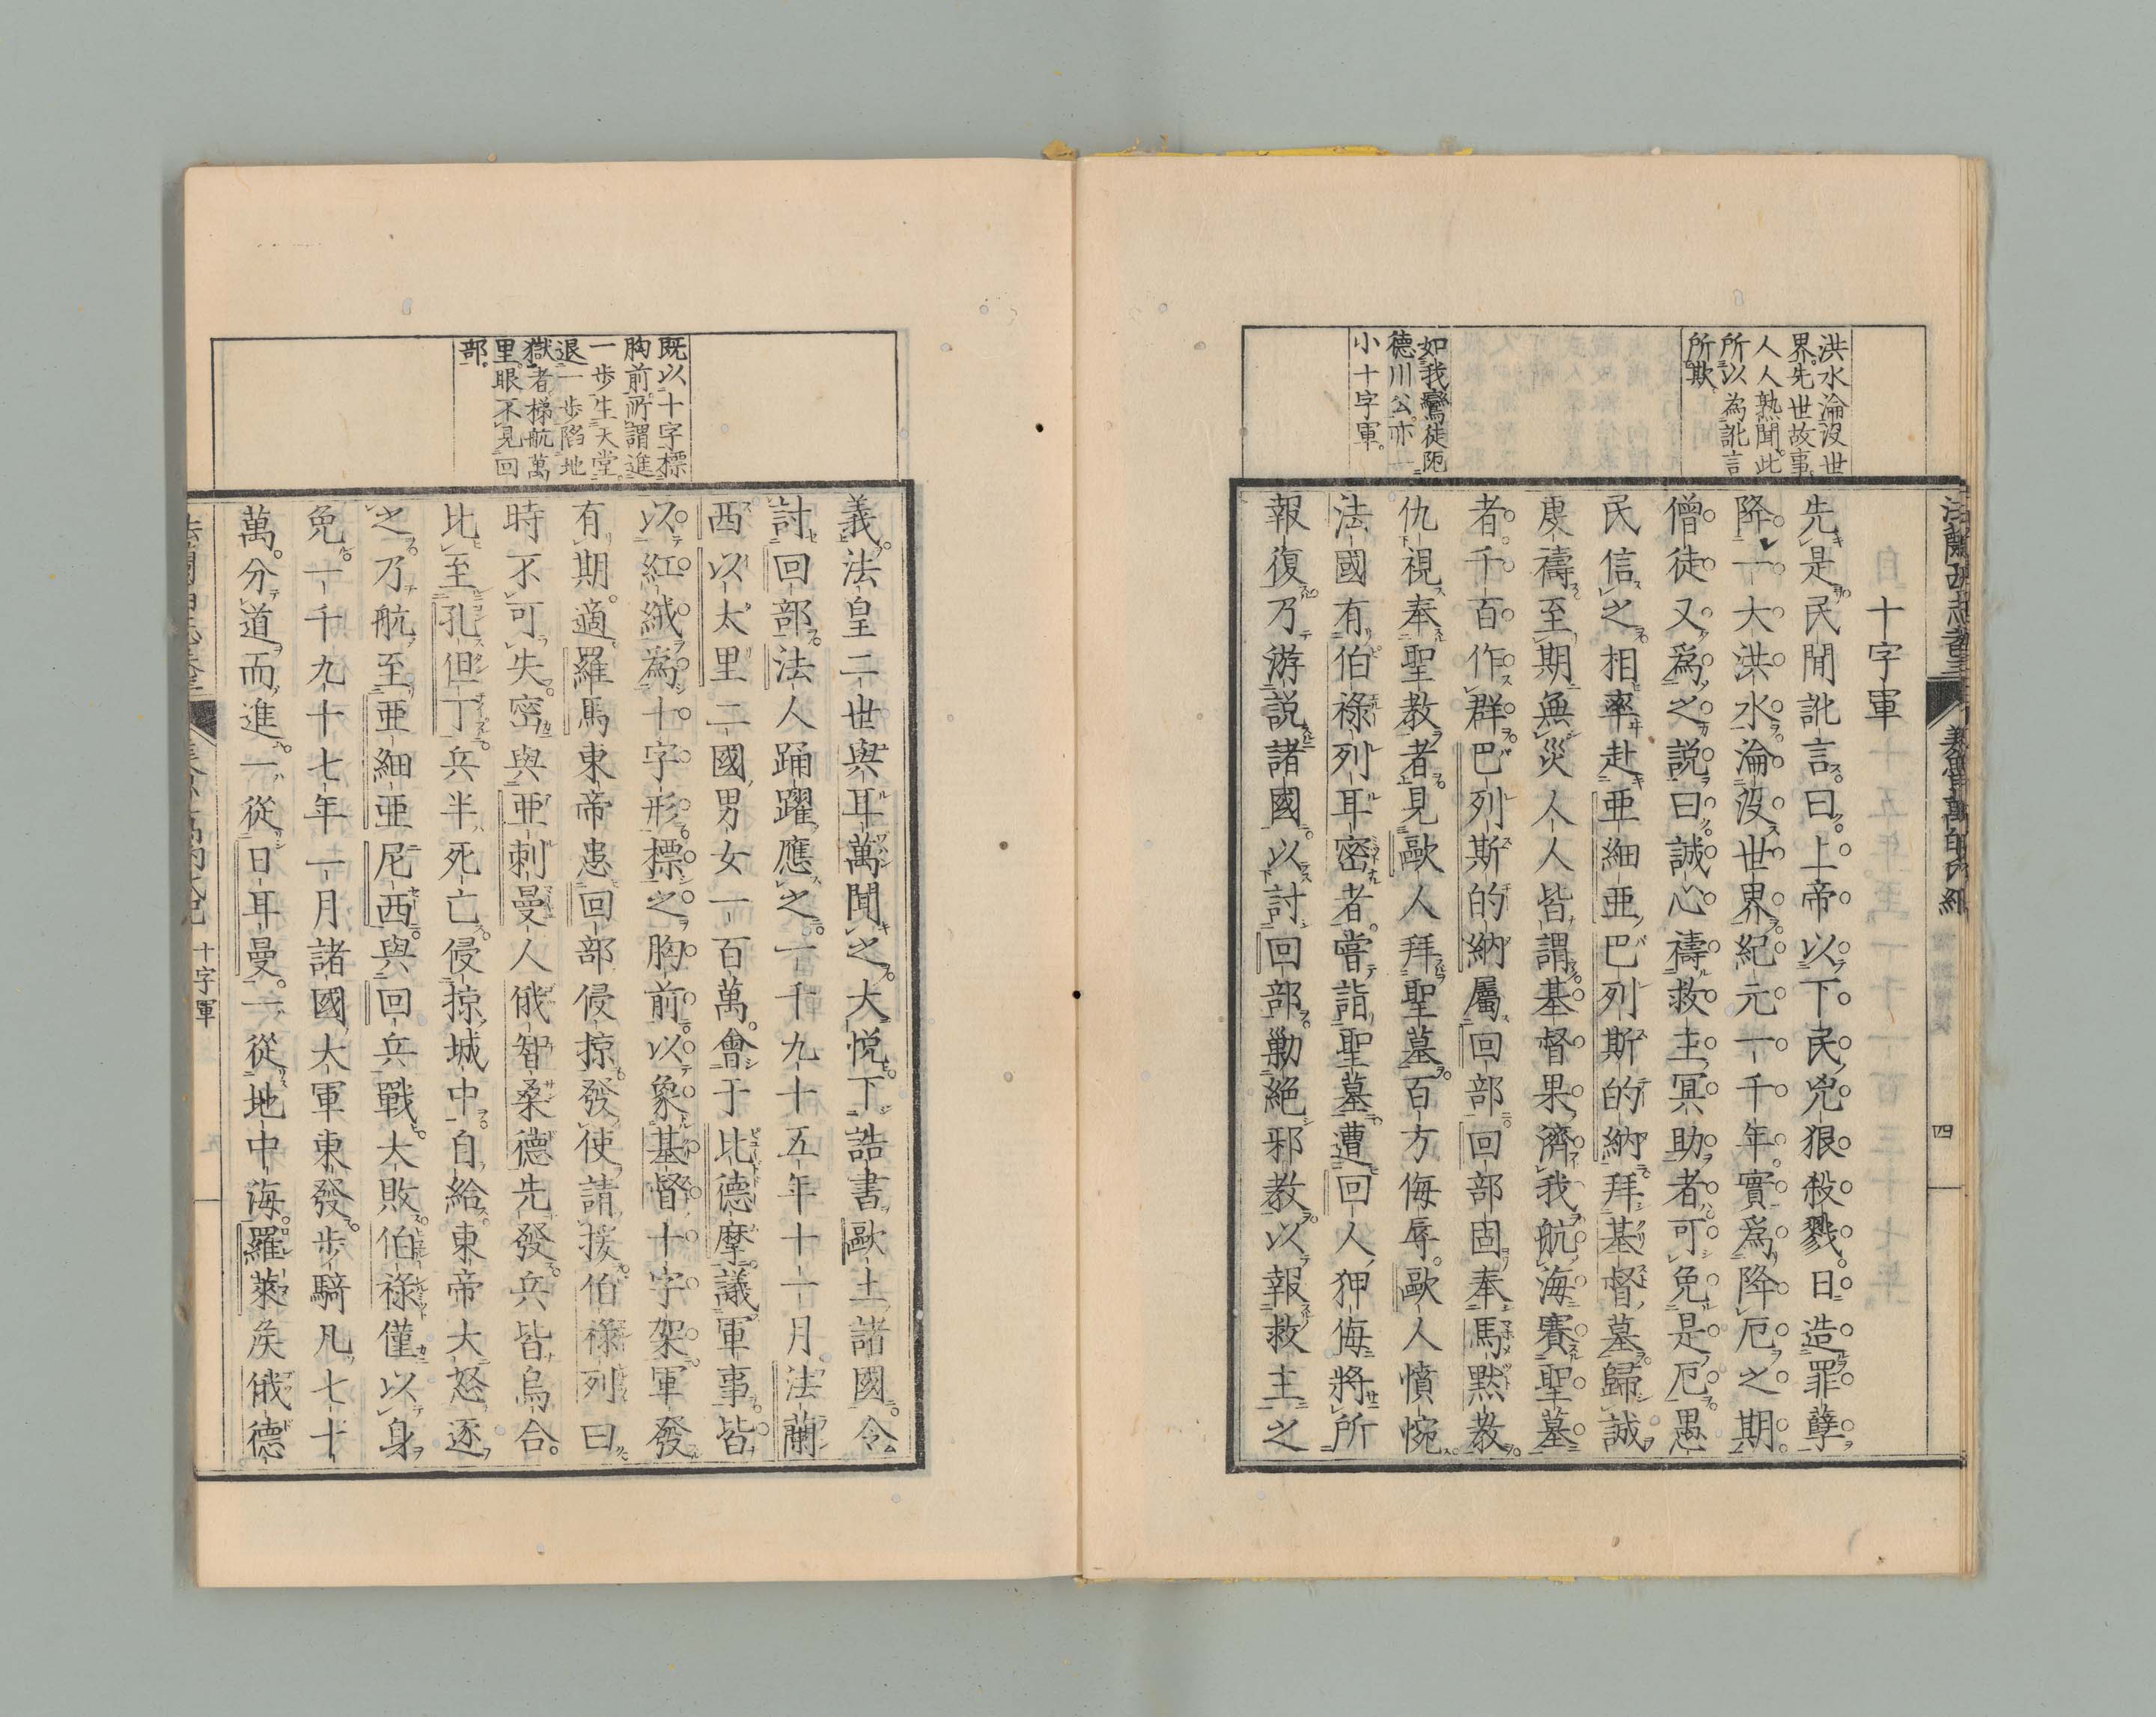 十字軍
先是民間訛言曰上帝以下民兇狠殺戮日造罪孽
降一大洪水淪沒世界紀元一千年實爲降厄之期
僧徒又爲之說曰誠心禱救主冥助者可免是厄愚
民信之相率赴亜細亜巴列斯的納拜基督墓歸誠
虔禱至期無災人人皆謂基督果濟我航海賽聖墓
者千百作群巴列斯的納屬回部回部固奉馬黙教
仇視奉聖教者見歐人拜聖墓百方侮辱歐人憤惋
法國有伯祿列耳密者嘗詣聖墓遭回人狎侮將所
報復乃游說諸國以討回部勦絕邪教以報救主之
洪水淪沒世
界先世故事
人人熟聞此
所以為訛言
所欺
如我鸞徒阨
德川公亦一
小十字軍
四
義法皇二世與耳萬聞之大悅下誥書歐土諸國令
討回部法人踊躍應之一千九十五年十一月法蘭
西以太里二國男女一百萬會于比德摩議軍事皆
以紅絨爲十字形標之胸前以象基督十字架軍發
有期適羅馬東帝患回部侵掠發使請援伯祿列曰
時不可失密與亜剌曼人俄智桑德先發兵皆烏合
比至孔但丁兵半死亡侵掠城中自給東帝大怒逐
之乃航至亜細亜尼西與回兵戰大敗伯祿僅以身
免一千九十七年一月諸國大軍東發步騎凡七十
萬分道而進一從日耳曼一從地中海羅萊矦俄德
既以十字標
胸前所謂進
一步生天堂
退一步陷地
獄者梯航萬
里眼不見回
部
十字軍